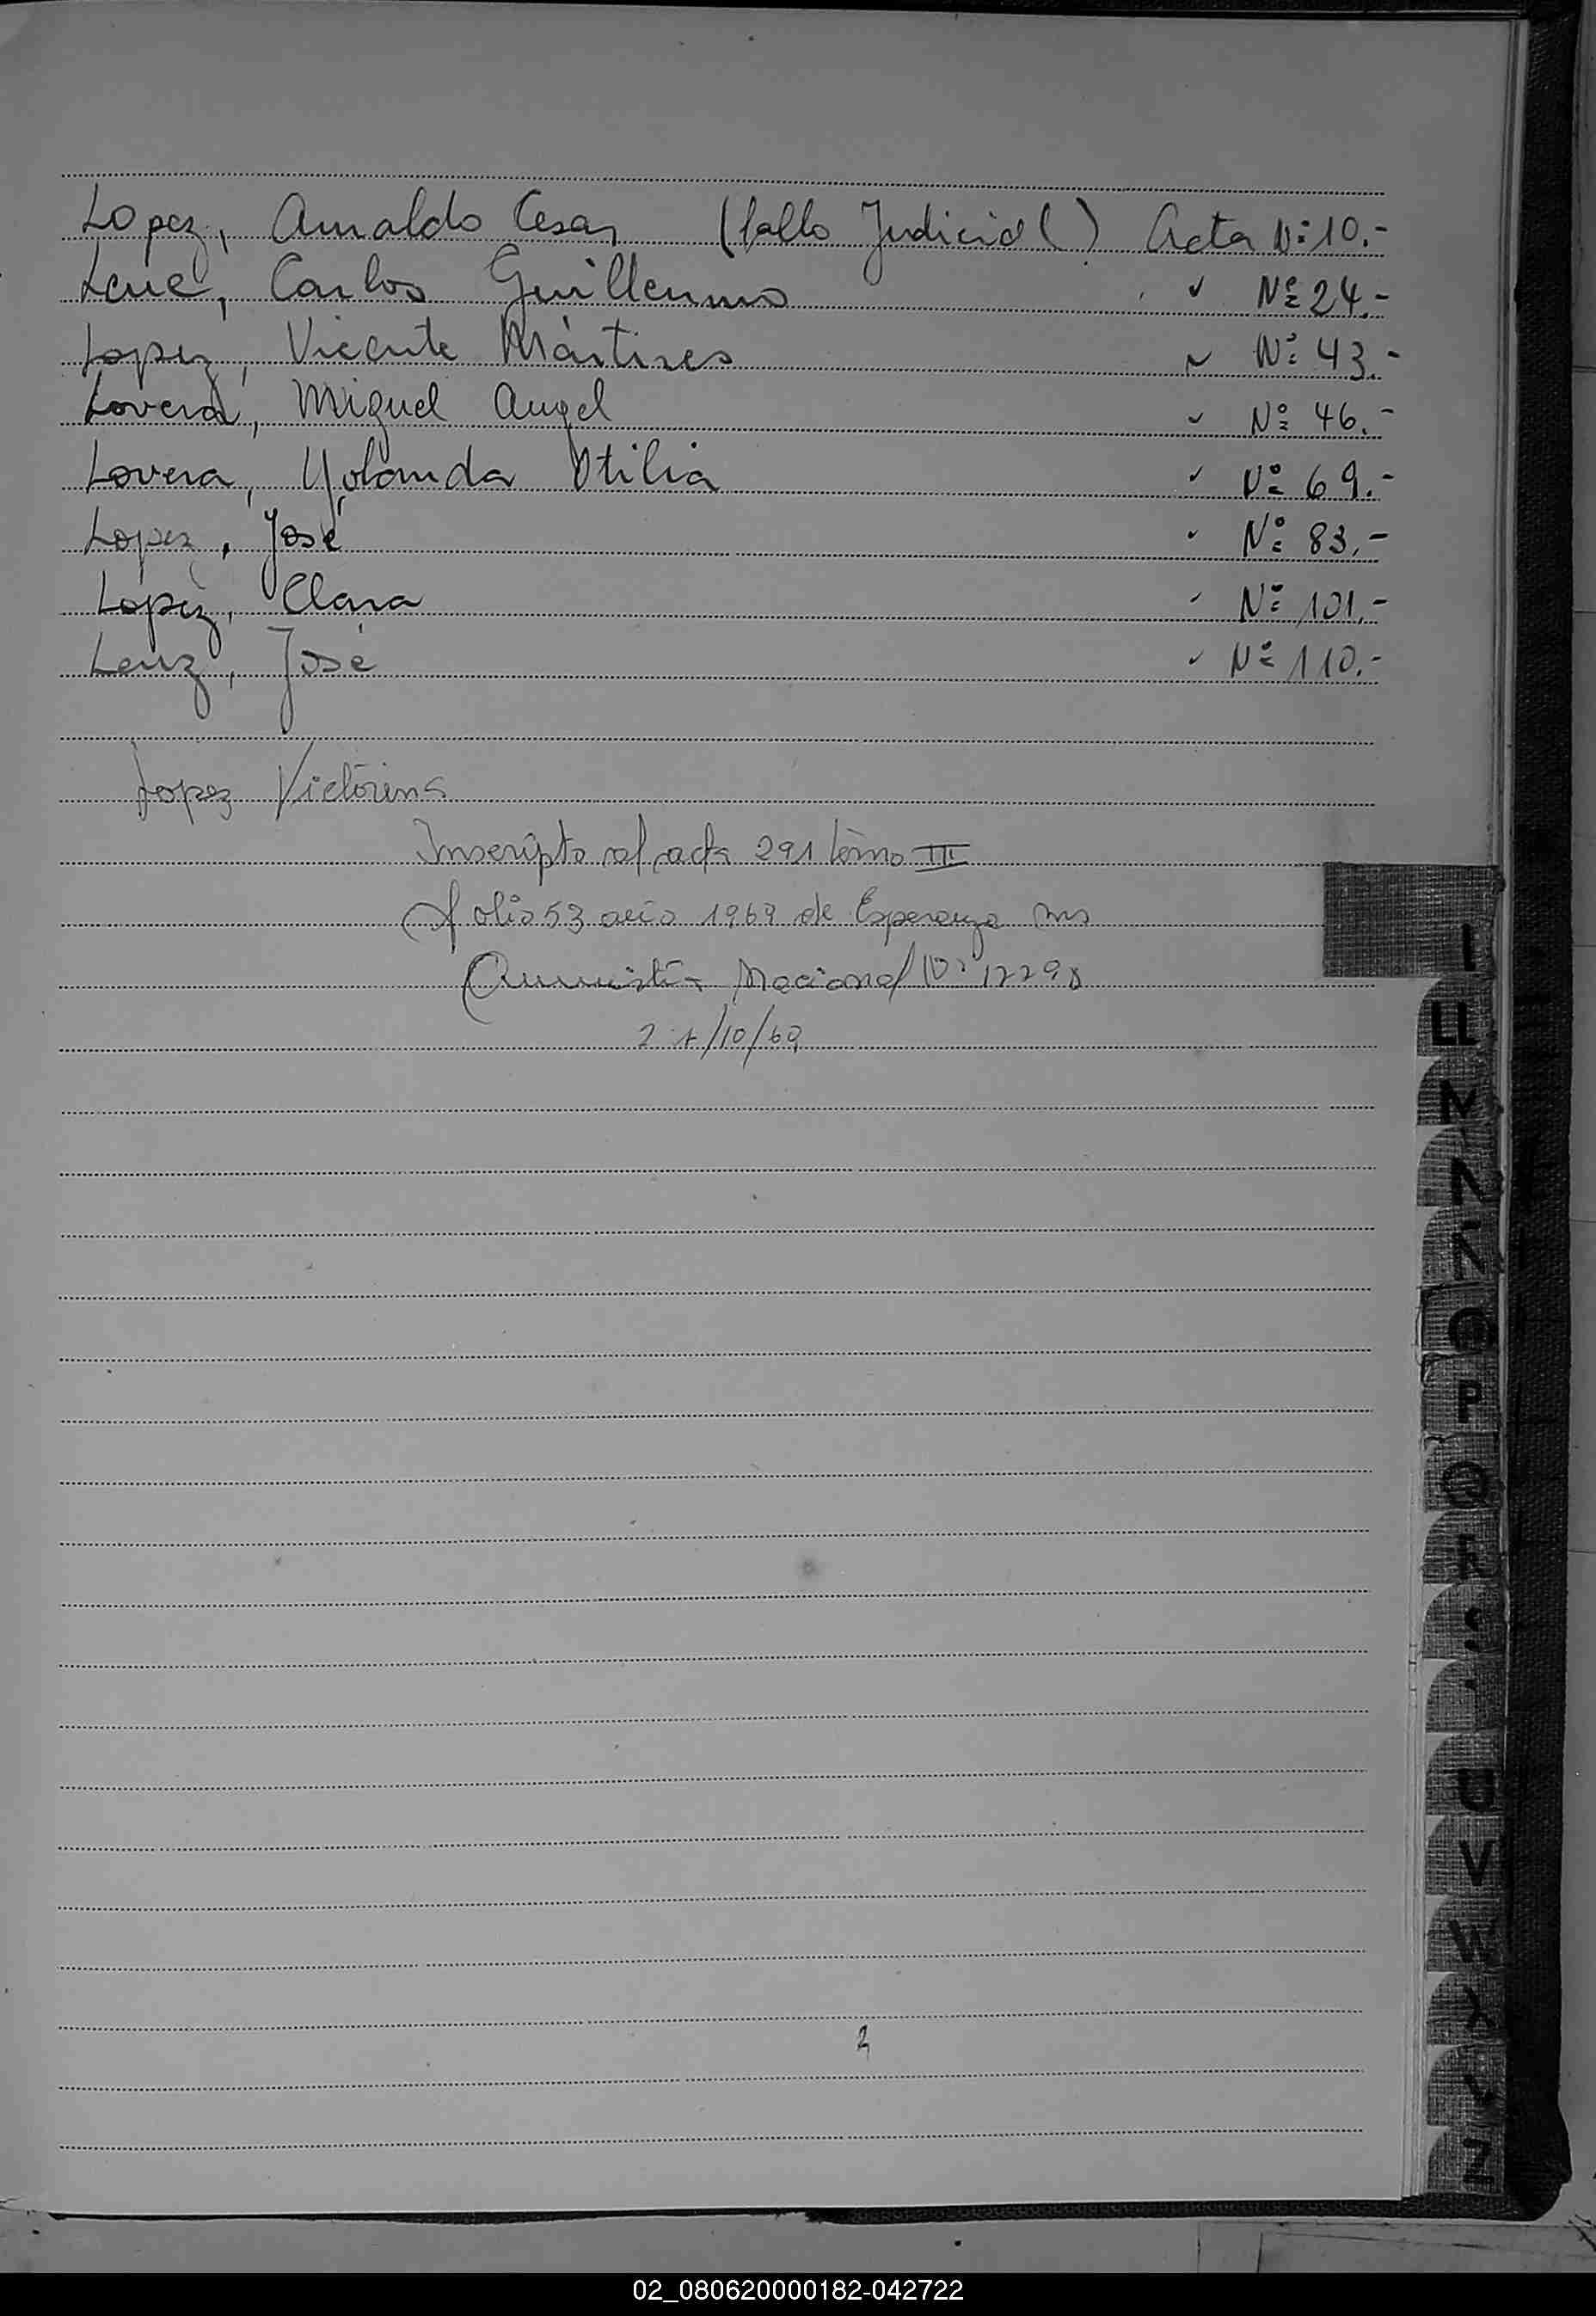 Lopez, Arnaldo Cesar (fallo Judicial) Acta Nº 10.-
Carlos Guillermo ✓ Nº 24.-
Lopez, Vicente Mártires ✓ Nº 43.-
Lovera, Miguel Angel ✓ Nº 46.-
Lovera, Yolanda Otilia ✓ Nº 69.-
Lopez, José ✓ Nº 83.-
Lopez, Clara ✓ Nº 101.-
José ✓ Nº 110.-
Lopez Victorina
Inscripto al acta 291 tomo III
folio 53 año 1969 de Esperanza
Amnistía Nacional Nº
/10/69
L
LL
M
N
Ñ
O
P
Q
R
S
U
V
W
X
Z
02_080620000182-042722